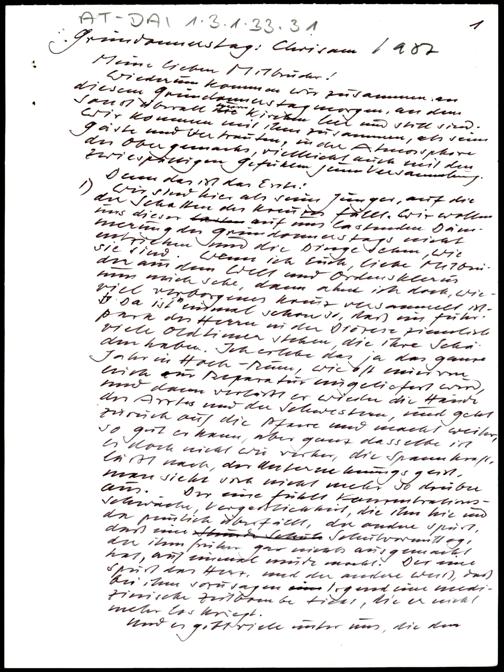 AT-DAI 1.3.1.33.31
1
Gründonnerstag: Chrisam 1987
Meine lieben Mitbrüder!
Wiederum kommen wir zusammen an
diesem Gründonnerstagmorgen, an dem
sonst überall die Kirchen leer und still sind.
Wir kommen mit ihm zusammen, als seine
Gäste und Vertrauten, in der Atmosphäre
des Obergemachs, vielleicht auch mit den
zwiespältigen Gefühlen jener Versammlung.
Denn das ist das Erste:
1) Wir sind hier als seine Jünger, auf die
der Schatten des Kreuzes fällt. Wir wollen
uns dieser auf uns lastenden Däm-
merung des Gründonnerstags nicht
entziehen und die Dinge sehen, wie
sie sind. Wenn ich Euch, liebe Mitbrü-
der aus dem Welt und Ordensklerus
nun mich sehe, dann ahne ich doch, wie
viel verborgenes Kreuz versammelt ist.
Da ist einmal schon so, daß im Fuhr-
park des Herrn in der Diözese ziemlich
viele Oldtimer stehen, die ihre Schä
den haben. Ich erlebe das ja das ganze
Jahr in Hoch-Rum, wie oft einer von
euch zur Reparatur eingeliefert wird,
und dann verläßt er wieder die Hände
des Arztes und der Schwestern, und geht
zurück auf die Pfarre und macht weiter,
so gut er kann, aber ganz dasselbe ist
es doch nicht wie vorher, die Spannkraft
läßt nach, der Unternehmungsgeist,
man sieht sich nicht mehr so drüber
aus. Der eine fühlt Konzentrations-
schwäche, Vergeßlichkeit, die ihn hie und
da peinlich überfällt, der andere spürt,
daß ein Schulvormittag,
der ihm früher gar nichts ausgemacht
hat, auf einmal müde macht. Der eine
spürt das Herz, und der andere weiß, daß
bei ihm sozusagen irgend eine medi-
zinische Zeitbombe tickt, die er nicht
mehr los kriegt.
Und es gibt viele unter uns, die den